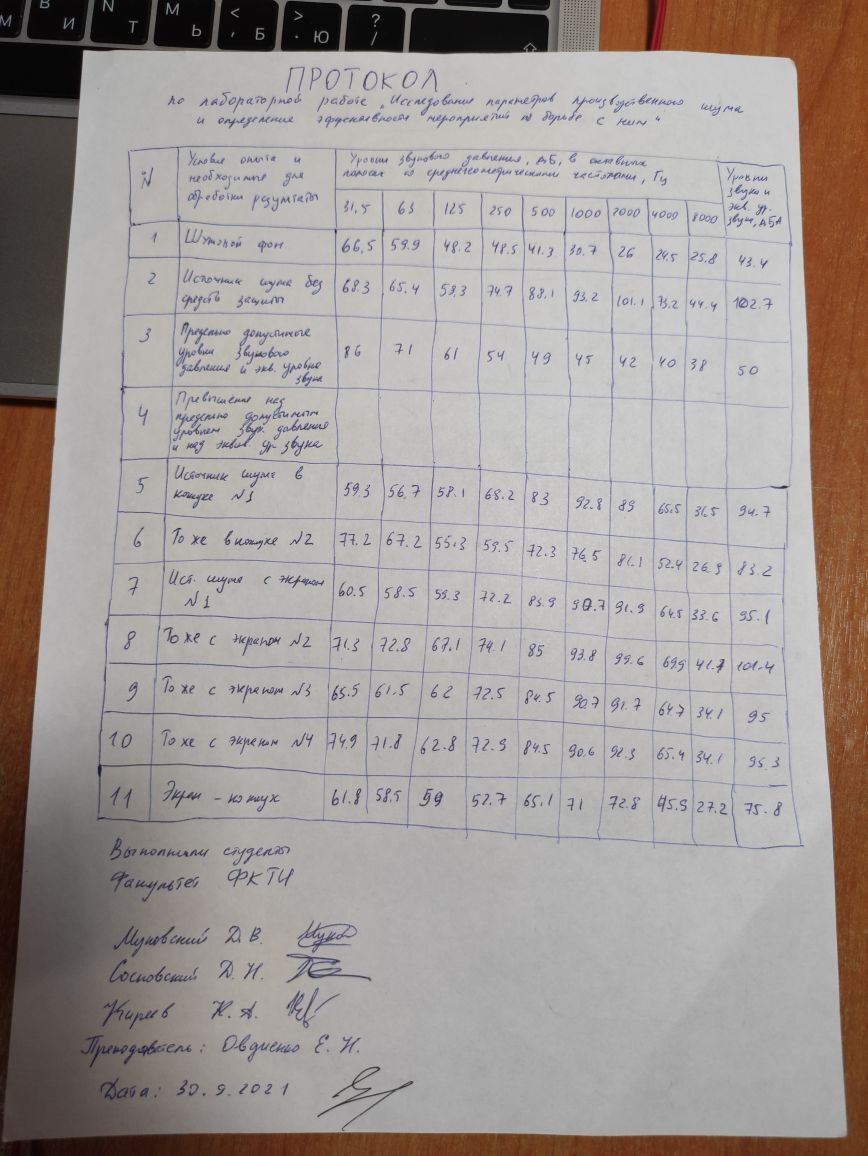 М И Т Ь < Б > Ю ? /
В N M
, .
ПРОТОКОЛ
по лабораторной работе „Исследование параметров производственного шума
и определение эффективности мероприятий по борьбе с ним"
N Условие опыта и необходимые для обработки результаты Уровни звукового давления, дБ, в октавных полосах со среднегеометрическими частотами, Гц Уровни звука и экв. ур. звука, дБА
31,5 63 125 250 500 1000 2000 4000 8000
1 Шумовой фон 66,5 59.9 48.2 48.5 41.3 30.7 26 24.5 25.8 43.4
2 Источник шума без средств защиты 68.3 65.4 58.3 74.7 88.1 93.2 101.1 73.2 44.4 102.7
3 Предельно допустимые уровни звукового давления и экв. уровня звука 86 71 61 54 49 45 42 40 38 50
4 Превышение над предельно допустимым уровнем звук. давления и над эквив. ур звука
5 Источник шума в кожухе N1 59.3 56.7 58.1 68.2 83 92.8 89 65.5 31.5 94.7
6 То же в кожухе N2 77.2 67.2 55.3 59.5 72.3 76.5 81.1 52.4 26.9 83.2
7 Ист. шума с экраном N1 60.5 58.5 59.3 72.2 83.9 90.7 91.9 64.5 33.6 95.1
8 То же с экраном N2 71.3 72.8 67.1 74.1 85 93.8 99.6 69.9 41.7 101.4
9 То же с экраном N3 65.5 61.5 62 72.5 84.5 90.7 91.7 64.7 34.1 95
10 То же с экраном N4 74.9 71.8 62.8 72.9 84.5 90.6 92.3 65.4 34.1 95.3
11 Экран - кожух 61.8 58.5 59 52.7 65.1 71 72.8 45.9 27.2 75.8
Выполнили студенты
Факультет ФКТИ
Муковский Д.В.
Сосновский Д.Н.
Киреев К.А.
Преподаватель: Овдиенко Е.Н.
Дата: 30.9.2021